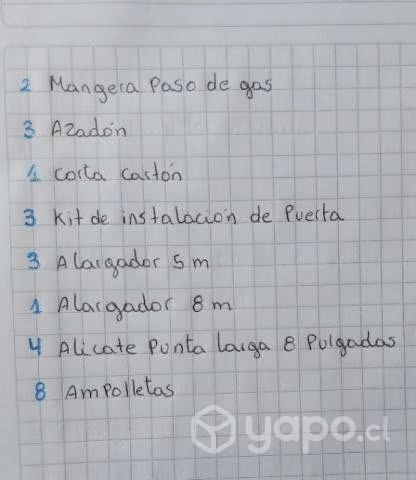 2 Mangera Paso de gas
3 Azadón
1 Corta cartón
3 Kit de instalación de Puerta
3 Alargador 5 m
1 Alargador 8 m
4 Alicate Punta larga 8 Pulgadas
8 Ampolletas
yapo.cl